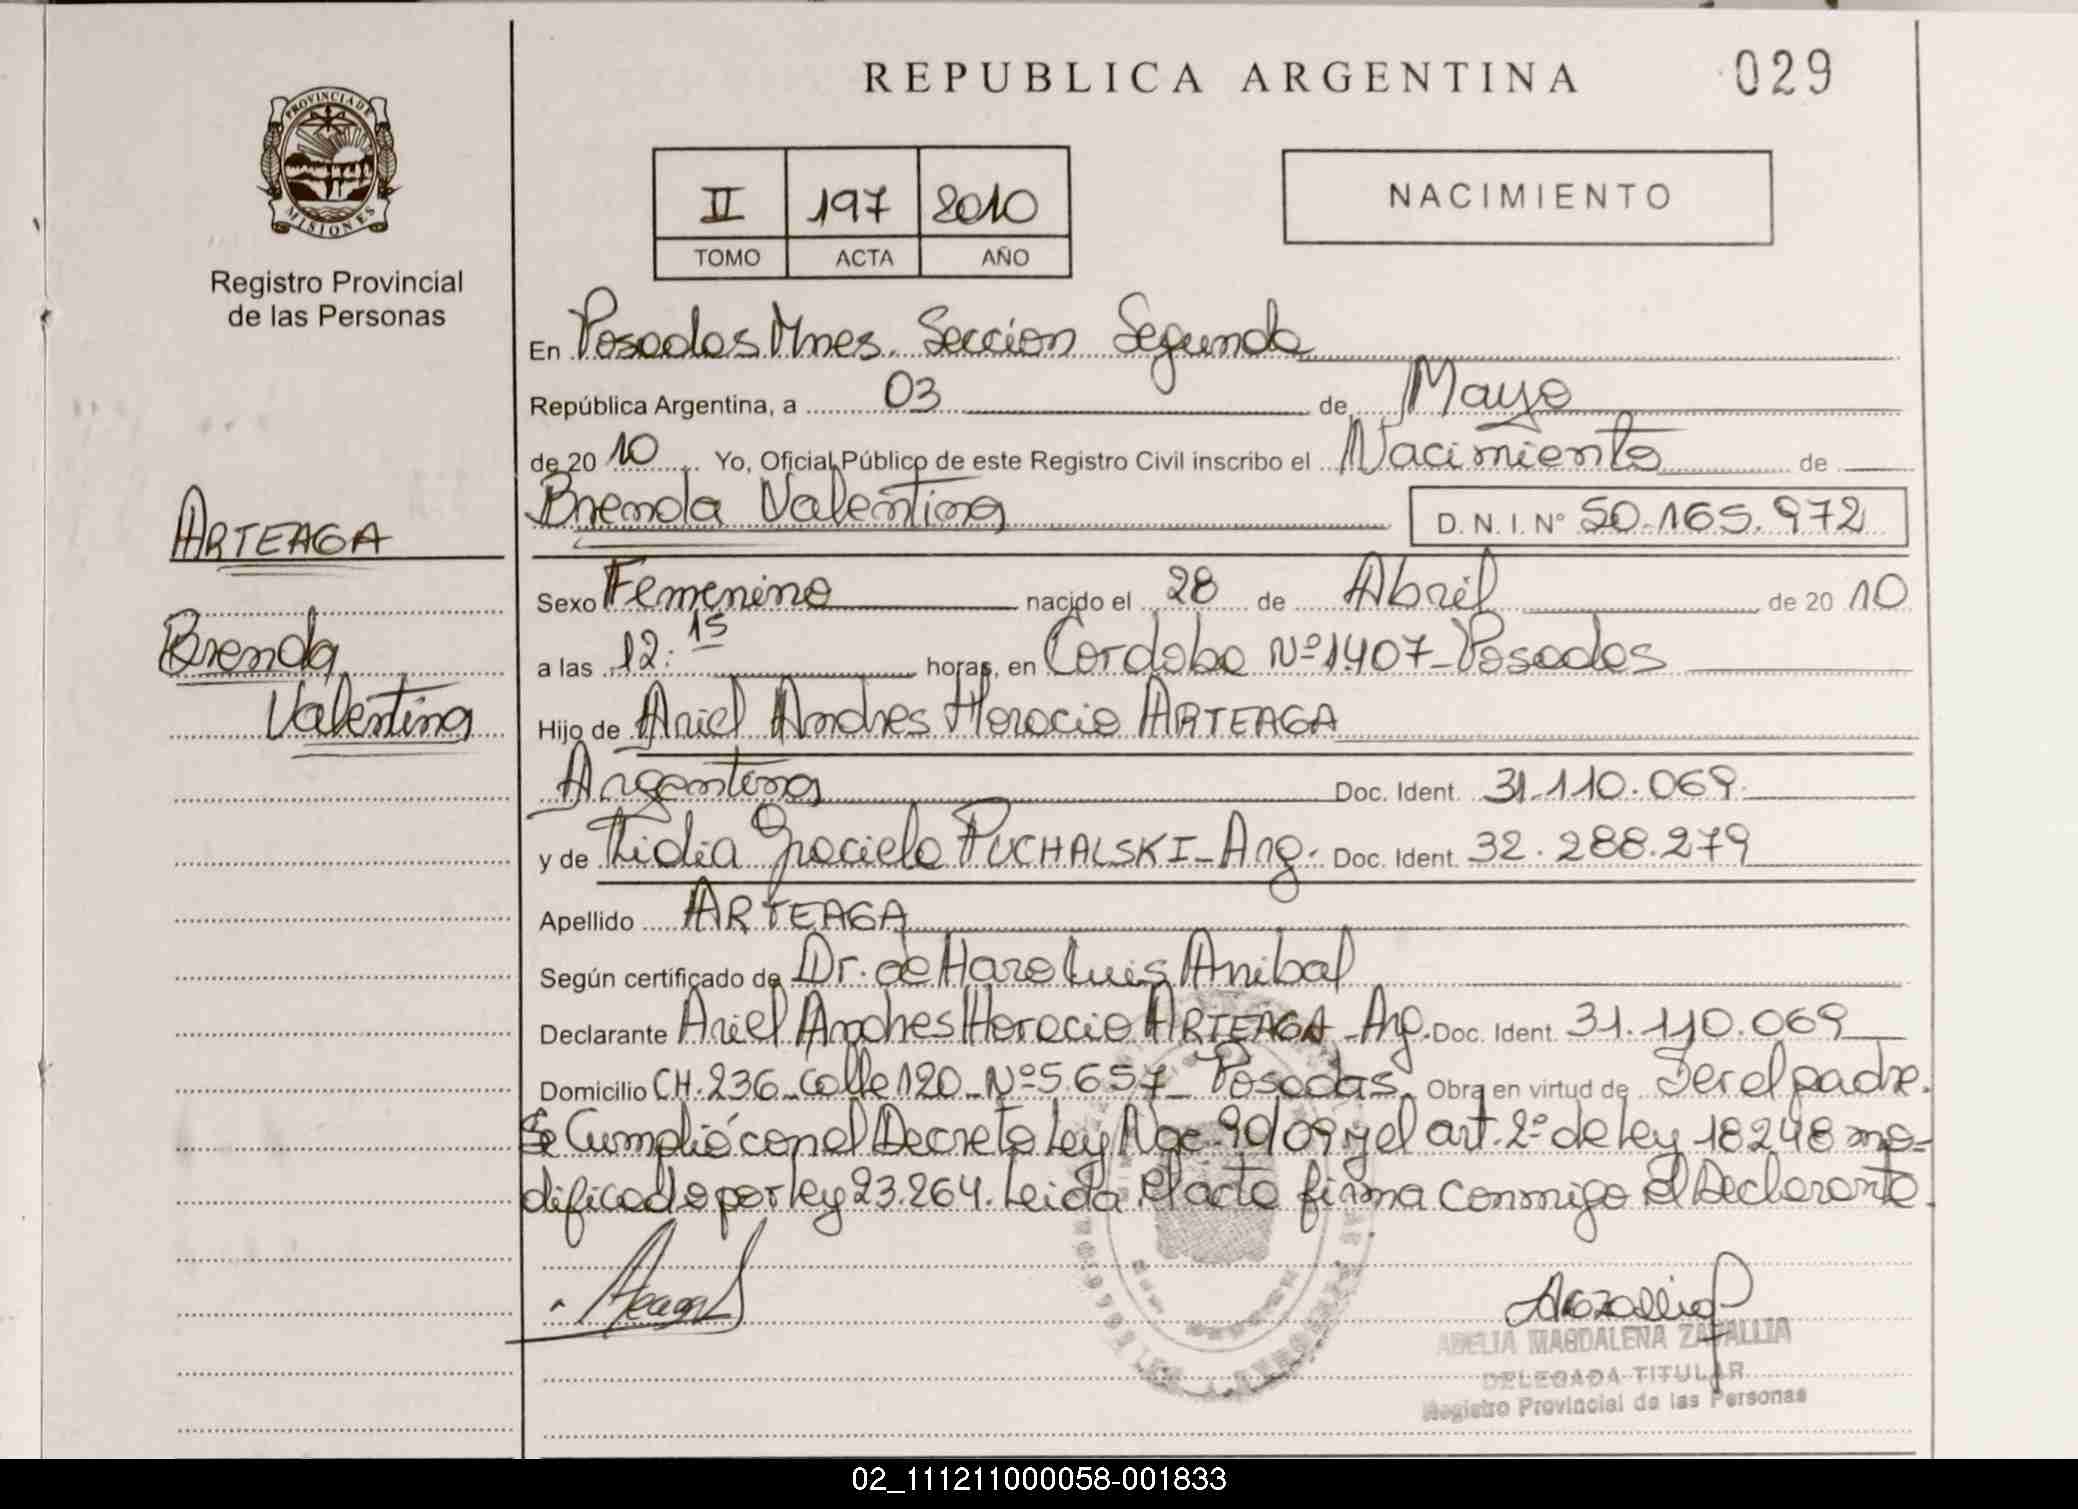 REPUBLICA ARGENTINA
029
PROVINCIA DE
MISIONES
Registro Provincial
de las Personas
II 197 2010
TOMO ACTA AÑO
NACIMIENTO
En Posadas Mnes. Sección Segunda
República Argentina, a 03 de Mayo
de 20 10 Yo, Oficial Público de este Registro Civil inscribo el Nacimiento de
Brenda Valentina D. N. I. Nº 50.165.972
ARTEAGA
Brenda
Valentina
Sexo Femenino nacido el 28 de Abril de 20 10
a las 12:15 horas, en Cordoba Nº 1407 - Posadas
Hijo de Ariel Andres Horacio ARTEAGA
Argentina Doc. Ident. 31.110.069
y de Lidia Graciela PUCHALSKI - Arg. Doc. Ident. 32.288.279
Apellido ARTEAGA
Según certificado de Dr. de Haro Luis Anibal
Declarante Ariel Andres Horacio ARTEAGA - Arg. Doc. Ident. 31.110.069
Domicilio CH. 236 - Calle 120 - Nº 5657 - Posadas. Obra en virtud de Ser el padre.
Se Cumplió con el Decreto Ley Nac. 90/09 y el art. 2º de Ley 18248 mo-
dificado por Ley 23.264. Leida el acta firma conmigo el Declarante.
ADELIA MAGDALENA ZAPALLIA
DELEGADA TITULAR
Registro Provincial de las Personas
02_111211000058-001833